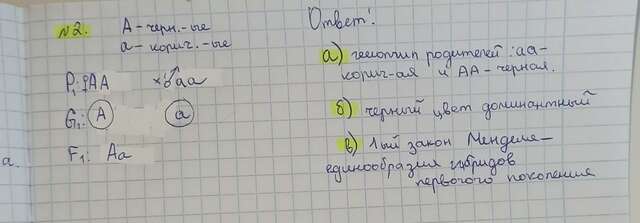 №2. А - черн. - ые
а - кориг. - ые
P₁: ♀АА × ♂аа
G₁: А а
F₁: Аа
а.
Ответ:
а) генотип родителей: аа-
кориг-ая и АА - черная.
б) черный цвет доминантный
в) 1ый закон Менделя -
единообразия гибридов
первого поколения